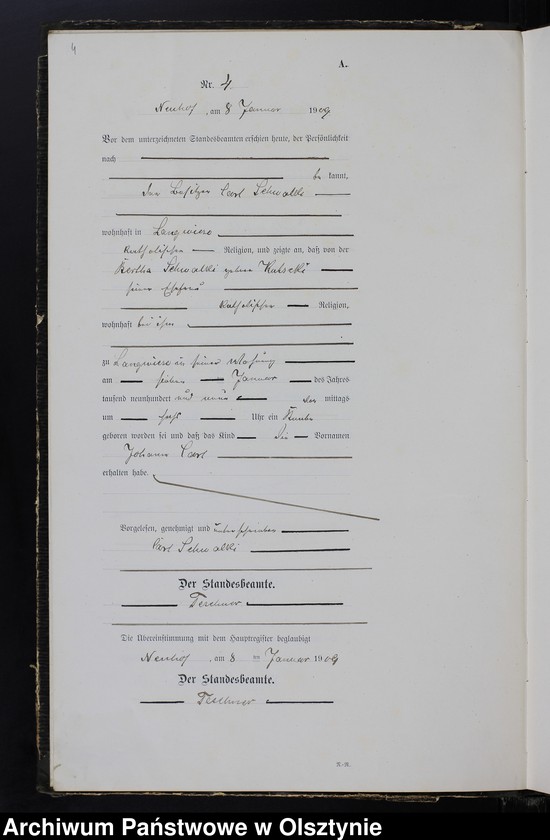 4
A.
Nr. 4
Neuhof, am 8 Januar 1909
Vor dem unterzeichneten Standesbeamten erschien heute, der Persönlichkeit
nach
be kannt,
der Besitzer Carl Schwalki
wohnhaft in Langwiese
katholischer Religion, und zeigte an, daß von der
Bertha Schwalki geborne
seiner Ehefrau
katholischer Religion,
wohnhaft bei ihm
zu Langwiese in seiner Wohnung
am Januar des Jahres
tausend neunhundert und neun mittags
um Uhr ein Knabe
geboren worden sei und daß das Kind die Vornamen
Johann Carl
erhalten habe.
Vorgelesen, genehmigt und unterschrieben
Carl Schwalki
Der Standesbeamte.
Teschner
Die Übereinstimmung mit dem Hauptregister beglaubigt
Neuhof, am 8 ten Januar 1909
Der Standesbeamte.
Teschner
Archiwum Państwowe w Olsztynie